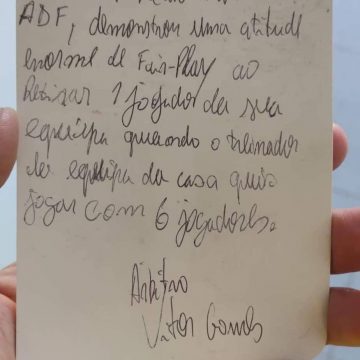 ADF, demonstrou uma atitude
enorme de Fair-Play ao
Retirar 1 jogador da sua
equipa quando o treinador
da equipa da casa quis
jogar com 6 jogadores.
Árbitro
Vitor Gomes